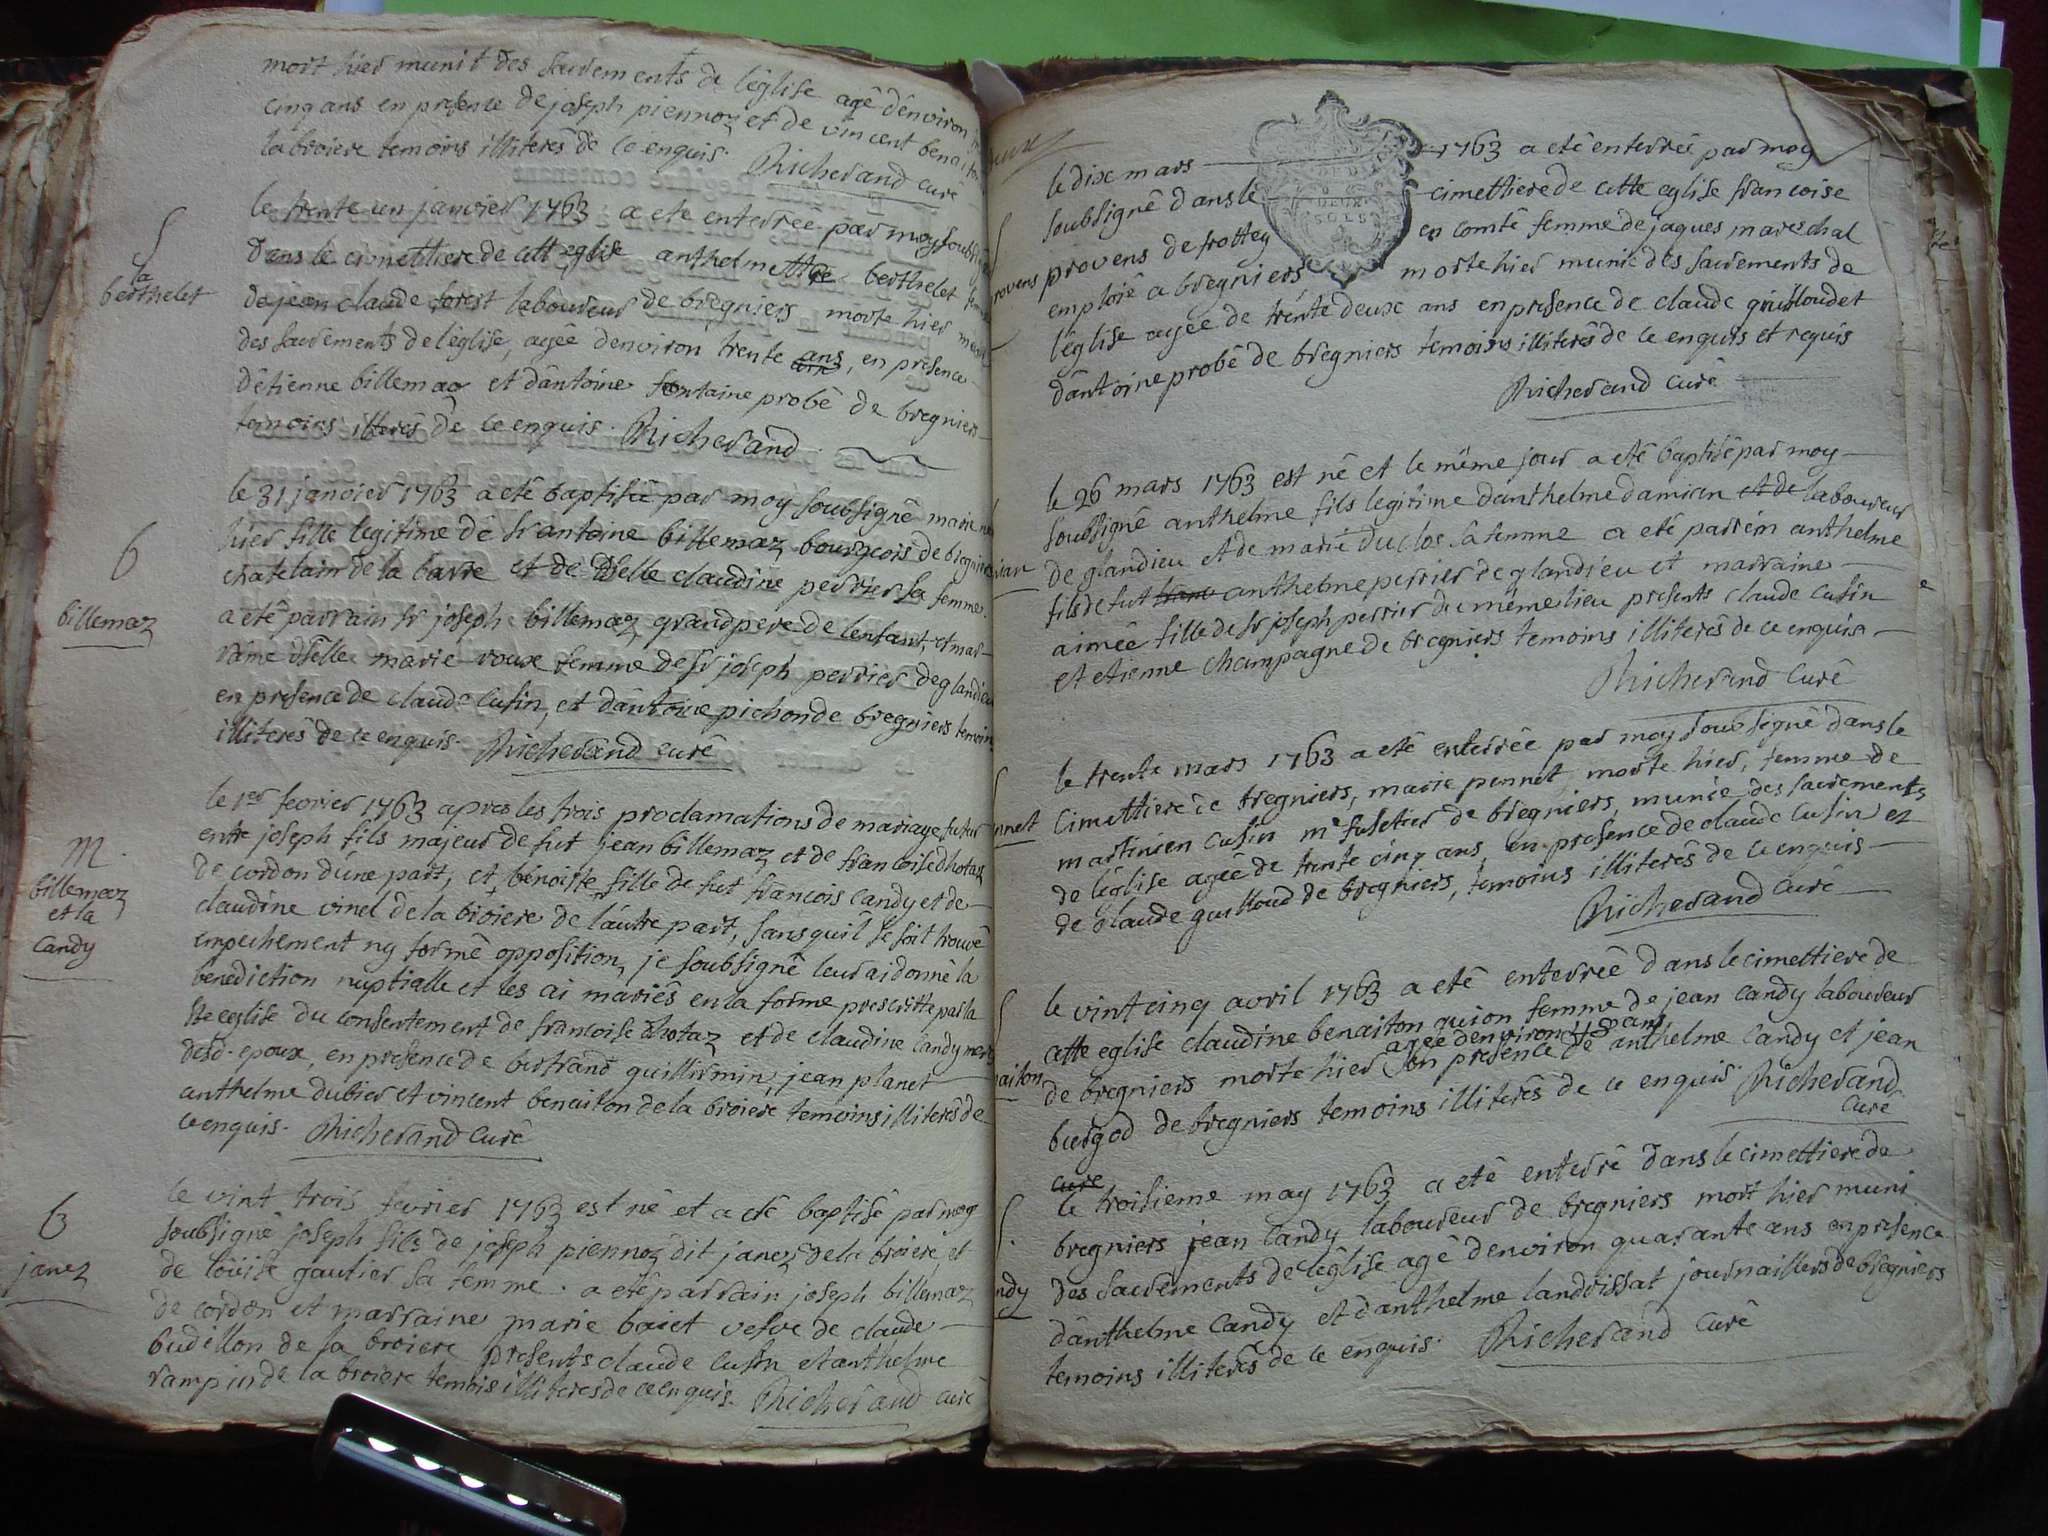 mort hier munit des sacrements de l'église agê dênviron
cinq ans en presence de joseph piennoz et de vincent benaiton
la broiere temoins illiterês de ce enquis. Richerand curê
S
la
berthelet
le trente un janvier 1763 a ete enterrée par moy soubsigné
dans le cimettiere de cett eglise anthelmette berthelet femme
de jean claude forest laboureur de bregniers morte hier munie
des sacrements de l'église, agée denviron trente ans, en presence
dêtienne billemaz et dântoine fontaine probê de bregniers
temoins illterês de ce enquis. Richerand
b
billemaz
le 31 janvier 1763 a etê baptisée par moy soubsignê marie née
hier fille legitime de sr antoine billemaz bourgeois de bregniers
chatelain de la barre et de Delle claudine perrier sa femme.
a etê parrain sr joseph billemaz grand pere de lenfant, et mar-
raine dêlle marie roux femme de sr joseph perrier de glandieu
en presence de claude cusin, et dântoine pichon de bregniers temoins
illiterês de ce enquis. Richerand curê
m.
billemaz
et la
candy
le 1er fevrier 1763 apres les trois proclamations de mariage futur
entre joseph fils majeur de fut jean billemaz et de francoise dhotaz
de cordon dúne part, et benoiste fille de fut francois candy et de
claudine vinel de la broiere de láutre part, sans quíl se soit trouvê
empechement ny formê opposition, je soubsignê leur ai donnê la
benediction nuptialle et les ai mariês en la forme prescritte par la
Ste eglise du consentement de francoise dhotaz et de claudine candy meres
desd. epoux, en presence de bertrand guillermin, jean planet
anthelme dubier et vincent benaiton de la broiere temoins illiterês de
ce enquis. Richerand Curê
b
janez
le vint trois fevrier 1763 est nê et a etê baptisê par moy
soubsignê joseph fils de joseph piennoz dit janez de la broiere, et
de louise gautier sa femme. a etê parrain joseph billemaz
de cordon et marraine marie baiet vefve de claude
budillon de la broiere presents claude cusin et anthelme
rampin de la broiere temois illiteres de ce enquis. Richerand curê
deux
DEUX
SOLS
le dix mars 1763 a etê enterrée par moy
soubsignê dans le cimettiere de cette eglise francoise
provens de frottey en comtê femme de jaques marechal
emploiê a bregniers morte hier munie des sacrements de
lêglise agée de trente deux ans en presence de claude guilloud et
dântoine probê de bregniers temoins illiterês de ce enquis et requis
Richerand curê
rovens
le 26 mars 1763 est nê et le même jour a etê baptisê par moy
soubsignê anthelme fils legitime danthelme damian et de laboureur
de glandieu et de marie duclos sa femme a etê parrein anthelme
fils de fut anthelme perrier de glandieu et marraine
aimée fille de sr joseph perrier du même lieu presents claude cusin
et etienne champagne de bregniers temoins illiterês de ce enquis
Richerand Curê
mian
le trente mars 1763 a etê enterrée par moy soubsignê dans le
cimettiere de bregniers, marie pennet morte hier, femme de
martinien cusin me fusetier de bregniers, munie des sacrements
de lêglise agée de trente cinq ans, en presence de claude cusin et
de claude guilloud de bregniers, temoins illiterês de ce enquis
Richerand Curê
nnet
le vint cinq avril 1763 a etê enterrée dans le cimettiere de
cette eglise claudine benaiton guion femme de jean candy laboureur
agée denviron 40 ans
de bregniers morte hier en presence de anthelme candy et jean
burgod de bregniers temoins illiterês de ce enquis. Richerand
curê
naiton
cure
le troisieme may 1763 a etê enterrê dans le cimettiere de
bregniers jean candy laboureur de bregniers mort hier muni
des sacrements de lêglise agê denviron quarante ans en presence
dânthelme candy et dânthelme landrissat journailliers de bregniers
temoins illiterês de ce enquis. Richerand Curê
ndy